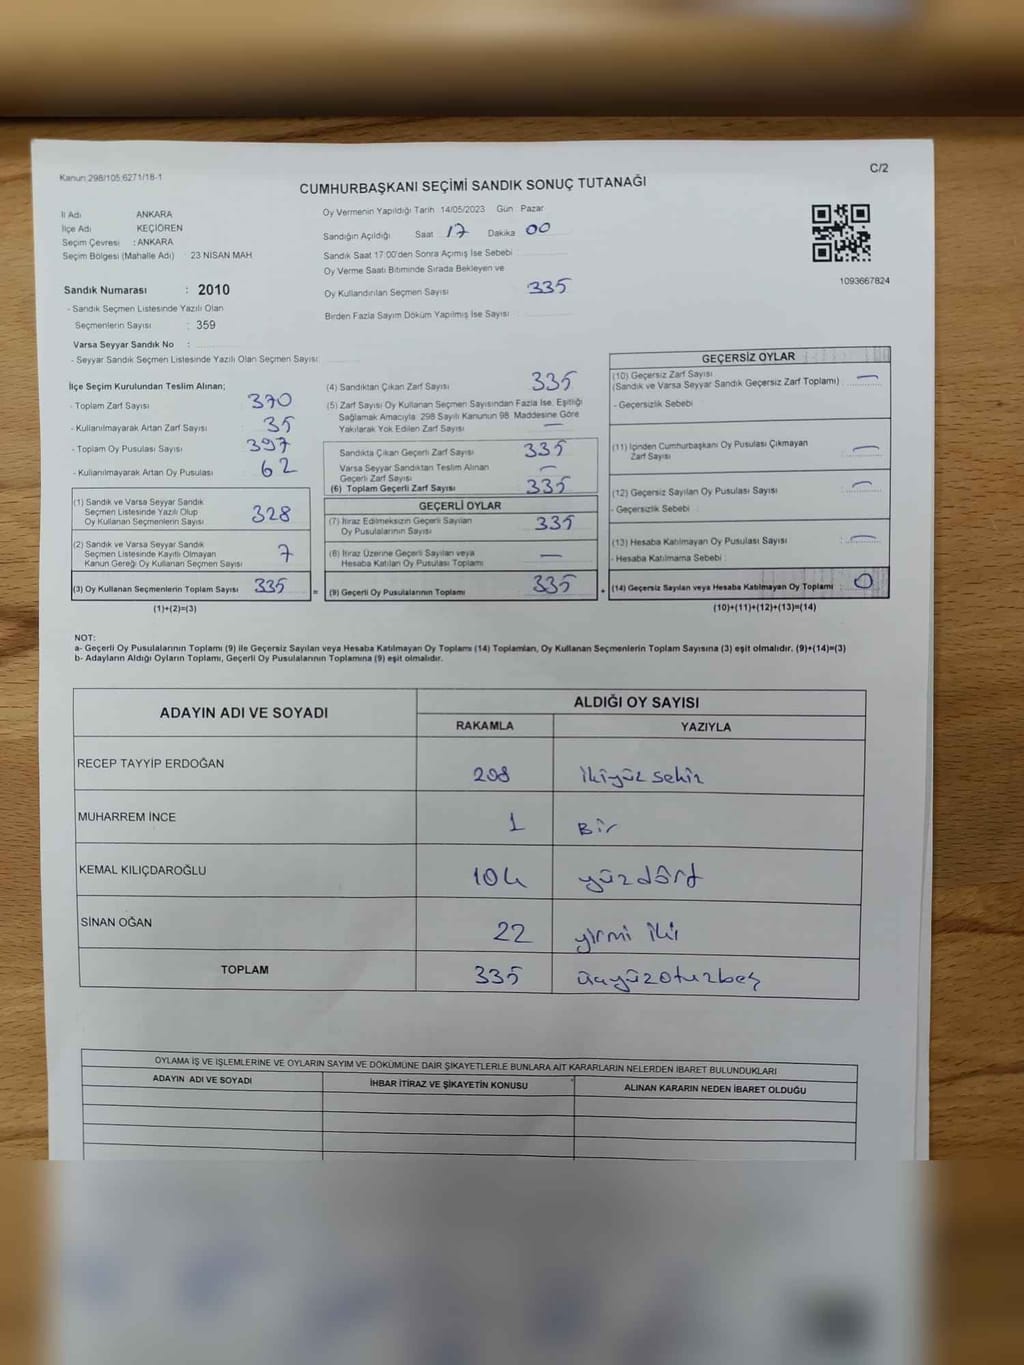 Kanun:298/105,6271/18-1
C/2
CUMHURBAŞKANI SEÇİMİ SANDIK SONUÇ TUTANAĞI
İl Adı ANKARA
İlçe Adı KEÇİÖREN
Seçim Çevresi : ANKARA
Seçim Bölgesi (Mahalle Adı) 23 NİSAN MAH
Sandık Numarası : 2010
- Sandık Seçmen Listesinde Yazılı Olan
Seçmenlerin Sayısı : 359
Varsa Seyyar Sandık No :
- Seyyar Sandık Seçmen Listesinde Yazılı Olan Seçmen Sayısı:
Oy Vermenin Yapıldığı Tarih 14/05/2023 Gün Pazar
Sandığın Açıldığı Saat 17 Dakika 00
Sandık Saat 17:00'den Sonra Açmış İse Sebebi
Oy Verme Saati Bitiminde Sırada Bekleyen ve
Oy Kullandırılan Seçmen Sayısı 335
Birden Fazla Sayım Döküm Yapılmış İse Sayısı
1093667824
İlçe Seçim Kurulundan Teslim Alınan;
- Toplam Zarf Sayısı 370
- Kullanılmayarak Artan Zarf Sayısı 35
- Toplam Oy Pusulası Sayısı 397
- Kullanılmayarak Artan Oy Pusulası 62
(1) Sandık ve Varsa Seyyar Sandık
Seçmen Listesinde Yazılı Olup
Oy Kullanan Seçmenlerin Sayısı 328
(2) Sandık ve Varsa Seyyar Sandık
Seçmen Listesinde Kayıtlı Olmayan
Kanun Gereği Oy Kullanan Seçmen Sayısı 7
(3) Oy Kullanan Seçmenlerin Toplam Sayısı 335 =
(1)+(2)=(3)
(4) Sandıktan Çıkan Zarf Sayısı 335
(5) Zarf Sayısı Oy Kullanan Seçmen Sayısından Fazla İse, Eşitliği
Sağlamak Amacıyla 298 Sayılı Kanunun 98. Maddesine Göre
Yakılarak Yok Edilen Zarf Sayısı —
Sandıkta Çıkan Geçerli Zarf Sayısı 335
Varsa Seyyar Sandıktan Teslim Alınan
Geçerli Zarf Sayısı —
(6) Toplam Geçerli Zarf Sayısı 335
GEÇERLİ OYLAR
(7) İtiraz Edilmeksizin Geçerli Sayılan
Oy Pusulalarının Sayısı 335
(8) İtiraz Üzerine Geçerli Sayılan veya
Hesaba Katılan Oy Pusulası Toplamı —
(9) Geçerli Oy Pusulalarının Toplamı 335 +
GEÇERSİZ OYLAR
(10) Geçersiz Zarf Sayısı
(Sandık ve Varsa Seyyar Sandık Geçersiz Zarf Toplamı) —
- Geçersizlik Sebebi
(11) İçinden Cumhurbaşkanı Oy Pusulası Çıkmayan
Zarf Sayısı —
(12) Geçersiz Sayılan Oy Pusulası Sayısı —
- Geçersizlik Sebebi
(13) Hesaba Katılmayan Oy Pusulası Sayısı —
- Hesaba Katılmama Sebebi :
(14) Geçersiz Sayılan veya Hesaba Katılmayan Oy Toplamı : 0
(10)+(11)+(12)+(13)=(14)
NOT:
a- Geçerli Oy Pusulalarının Toplamı (9) ile Geçersiz Sayılan veya Hesaba Katılmayan Oy Toplamı (14) Toplamları, Oy Kullanan Seçmenlerin Toplam Sayısına (3) eşit olmalıdır. (9)+(14)=(3)
b- Adayların Aldığı Oyların Toplamı, Geçerli Oy Pusulalarının Toplamına (9) eşit olmalıdır.
ADAYIN ADI VE SOYADI ALDIĞI OY SAYISI
RAKAMLA YAZIYLA
RECEP TAYYİP ERDOĞAN 208 ikiyüz sekiz
MUHARREM İNCE 1 Bir
KEMAL KILIÇDAROĞLU 104 yüzdört
SİNAN OĞAN 22 yirmi iki
TOPLAM 335 üçyüzotuzbeş
OYLAMA İŞ VE İŞLEMLERİNE VE OYLARIN SAYIM VE DÖKÜMÜNE DAİR ŞİKAYETLERLE BUNLARA AİT KARARLARIN NELERDEN İBARET BULUNDUKLARI
ADAYIN ADI VE SOYADI İHBAR İTİRAZ VE ŞİKAYETİN KONUSU ALINAN KARARIN NEDEN İBARET OLDUĞU